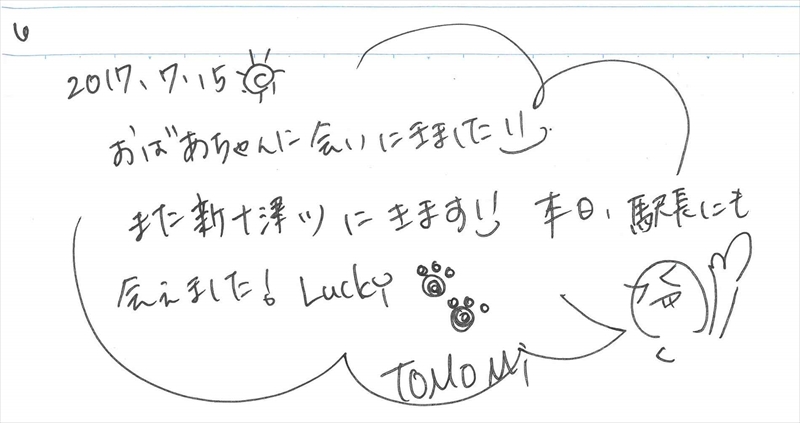 6
2017、7、15
おばあちゃんに会いにきました!!
また新十津川にきます!! 本日、駅長にも
会えました! Lucky
TOMOMi